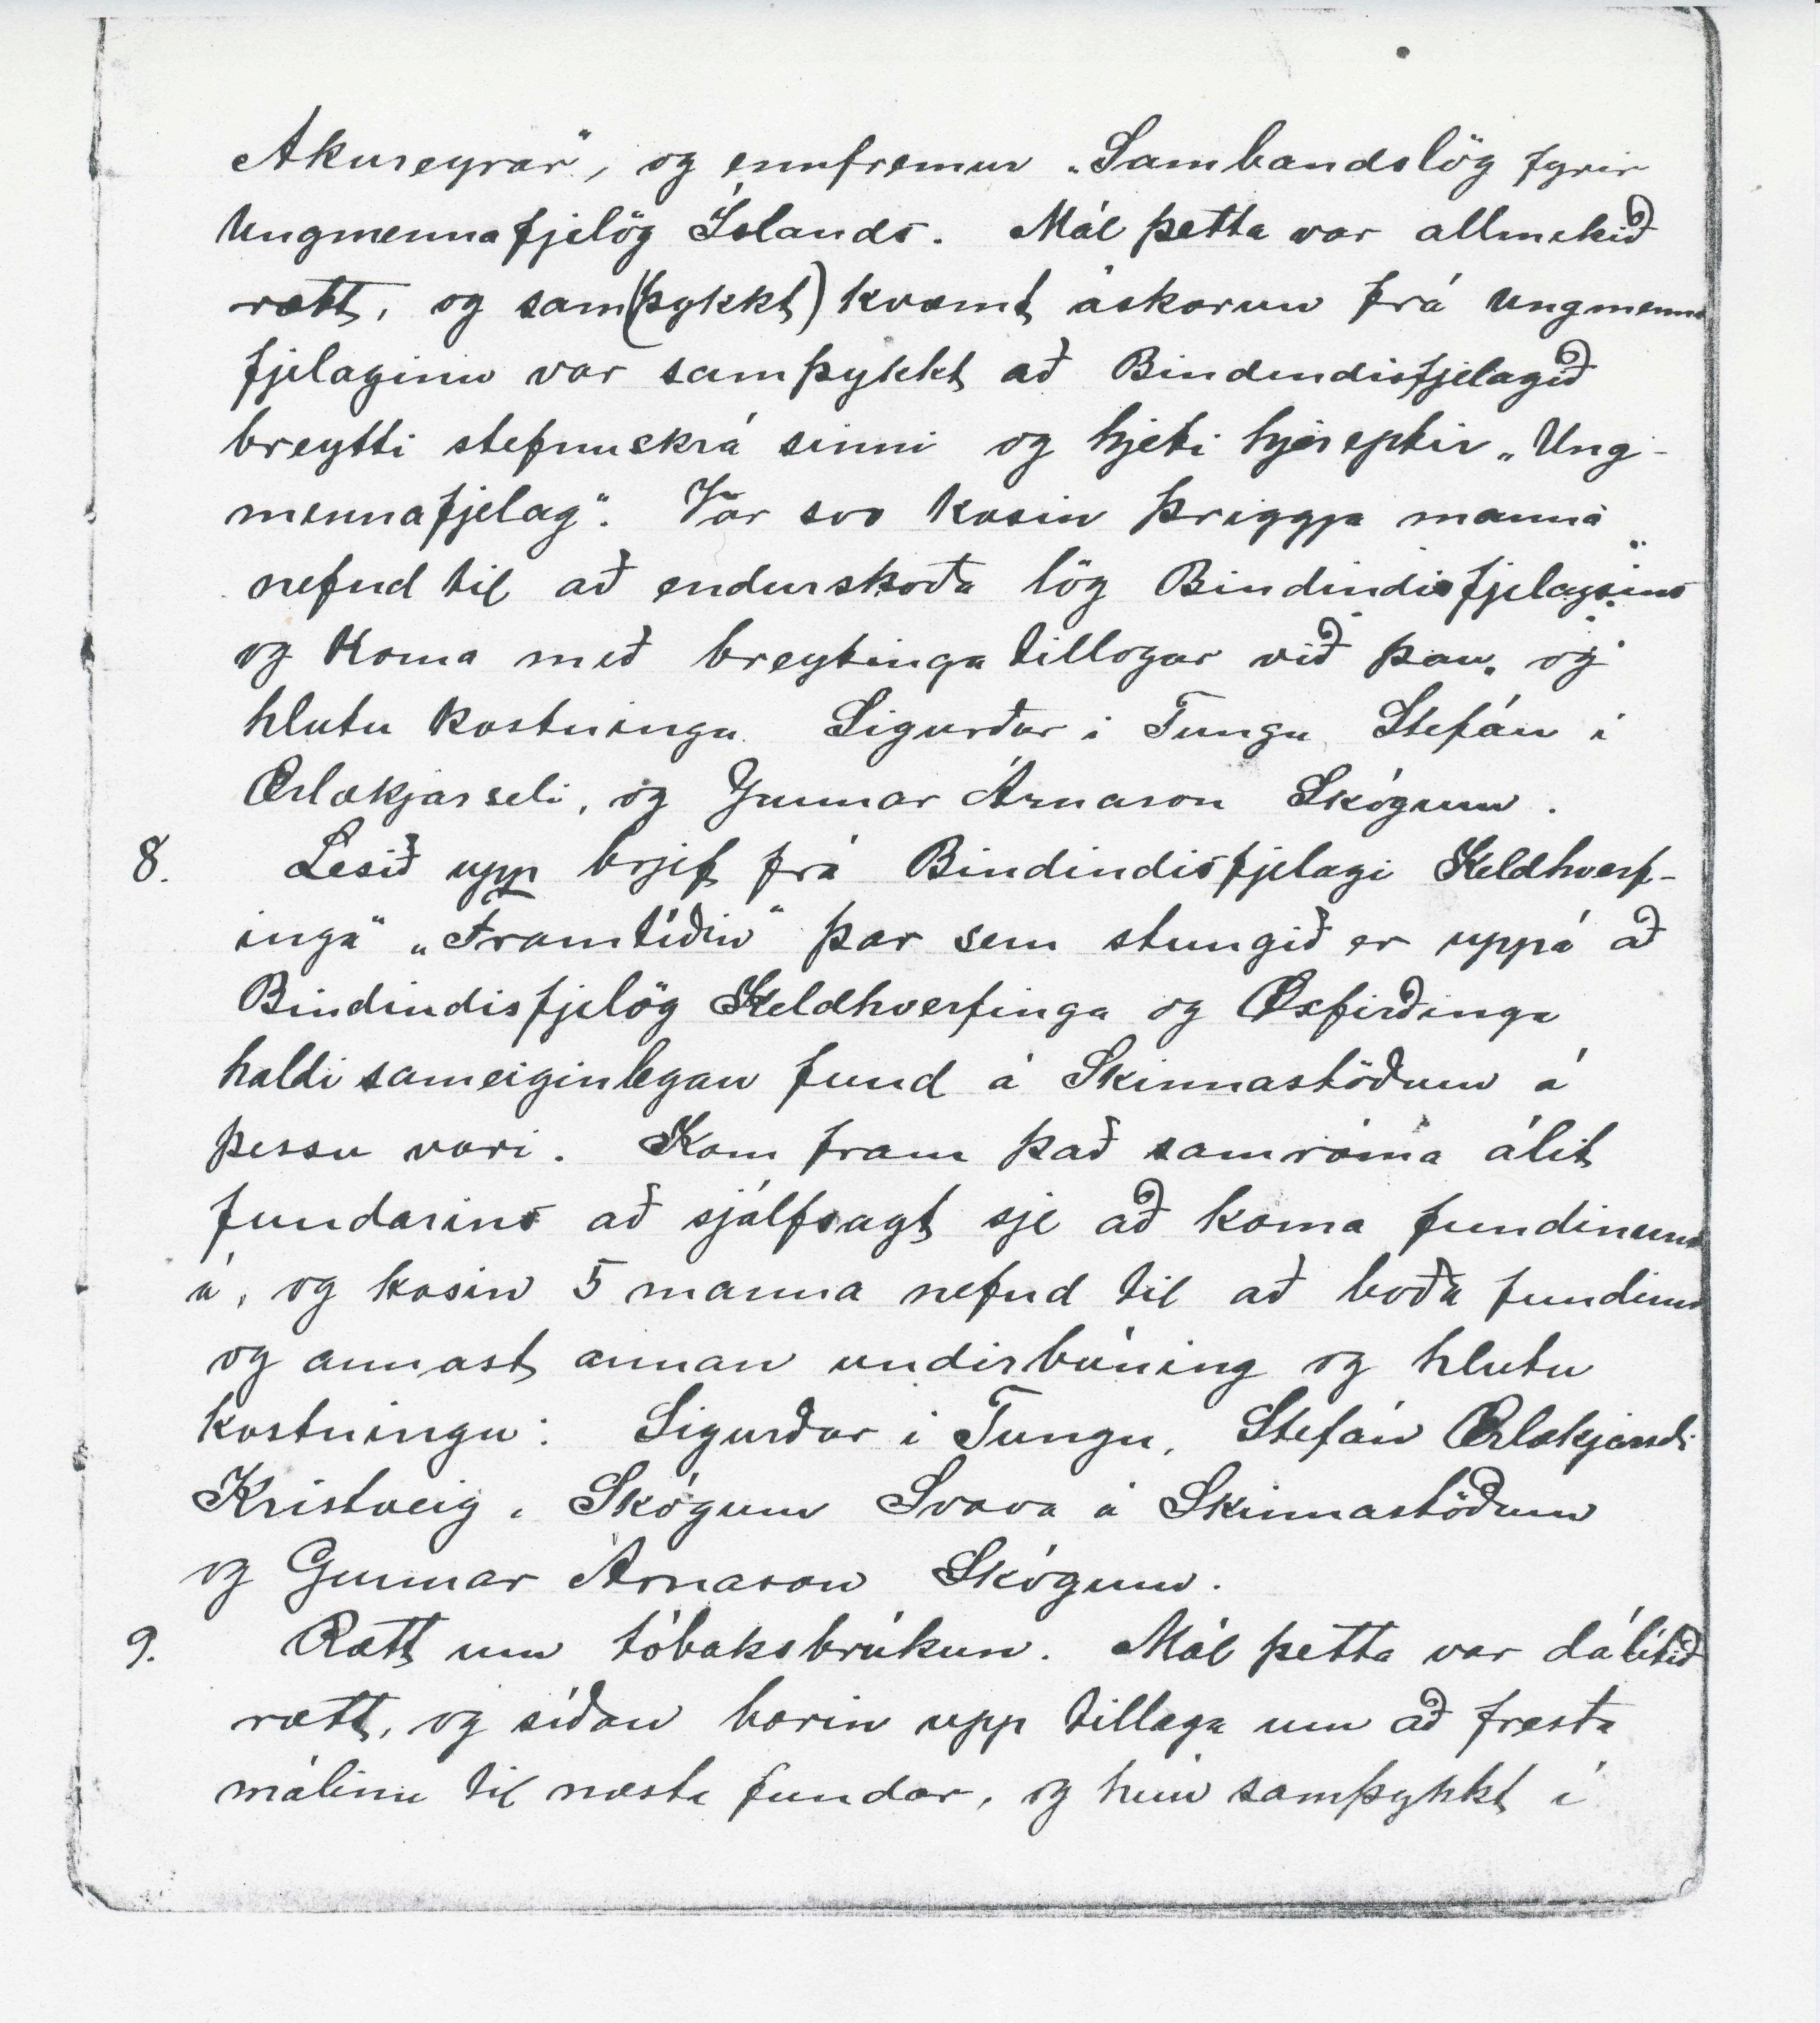 Akureyrar“, og ennfremur „Sambandslög fyrir
Ungmennafjelög Íslands. Mál þetta var allmikið
rætt, og sam(þykkt) kvæmt áskorun frá Ungmenna
fjelaginu var samþykkt að Bindindisfjelagið
breytti stefnuskrá sinni og hjeti hjer eptir „Ung-
mennafjelag“. Var svo kosin þriggja manna
nefnd til að endurskoða lög Bindindisfjelagsins
og koma með breytinga tillögur við þau, og
hlutu kostningu Sigurður i Tungu, Stefán í
Ærlækjarseli, og Gunnar Árnason Skógum.
8. Lesið upp brjef frá Bindindisfjelagi Keldhverf-
inga“ „Framtíðin“ þar sem stungið er uppá að
Bindindisfjelög Keldhverfinga og Öxfirðinga
haldi sameiginlegan fund á Skinnastöðum á
þessu vori. Kom fram það samróma álit
fundarins að sjálfsagt sje að koma fundinum
á, og kosin 5 manna nefnd til að boða fundinn
og annast annan undirbúning og hlutu
kostningu: Sigurður i Tungu, Stefán Ærlækjarseli
Kristveig í Skógum Svava á Skinnastöðum
og Gunnar Árnason Skógum.
9. Rætt um tóbaksbrúkun. Mál þetta var dálítið
rætt, og síðan borin upp tillaga um að fresta
málinu til næsta fundar, og hún samþykkt í